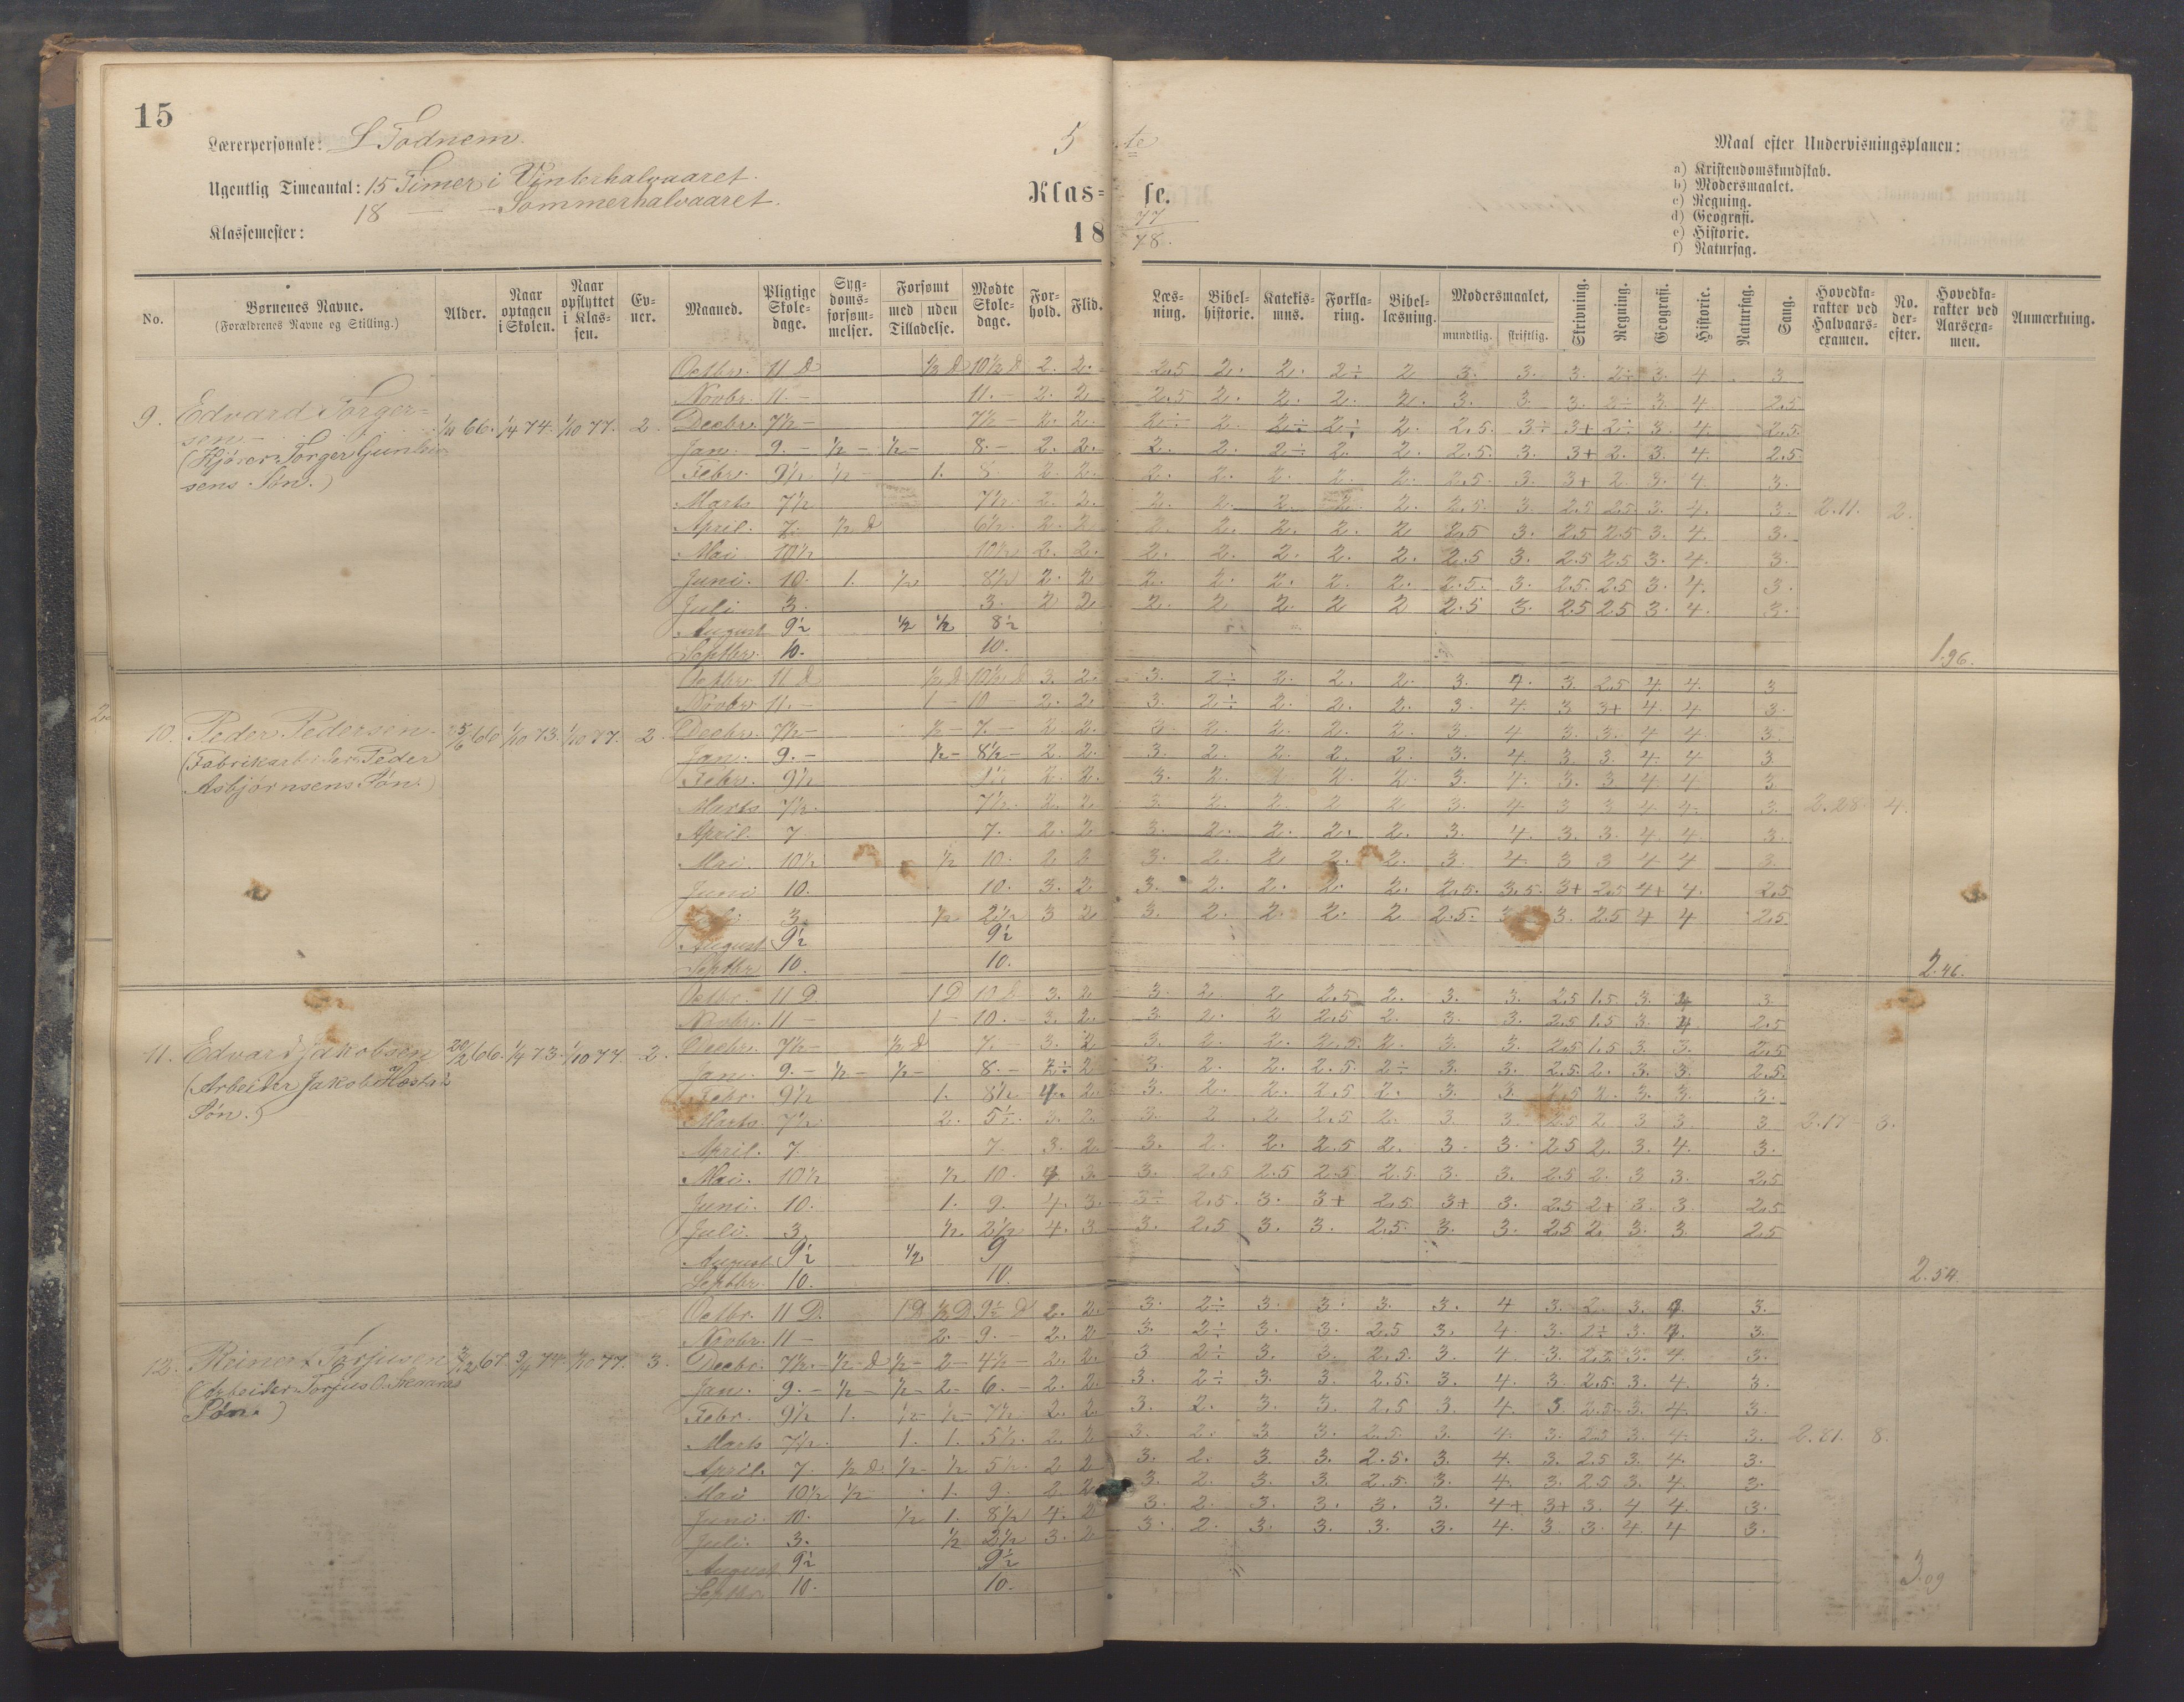 15
Lærerpersonale: S Todnem.
5 te
Maal efter Undervisningsplanen:
Ugentlig Timeantal: 15 Timer i Vinterhalvaaret.
18 — - Sommerhalvaaret.
Klas= se.
a) Kristendomskundskab.
b) Modersmaalet.
c) Regning.
d) Geografi.
e) Historie.
f) Naturfag.
Klassemester:
18 77
78.
No. Børnenes Navne. (Forældrenes Navne og Stilling.) Alder. Naar optagen i Skolen. Naar opflyttet i Klassen. Evner. Maaned. Pligtige Skoledage. Sygdomsforsømmelser. Forsømt med uden Tilladelse. Mødte Skoledage. Forhold. Flid. Læsning. Bibelhistorie. Katekismus. Forklaring. Bibellæsning. Modersmaalet, mundtlig. skriftlig. Skrivning. Regning. Geografi. Historie. Naturfag. Sang. Hovedkarakter ved Halvaarsexamen. No. derefter. Hovedkarakter ved Aarsexamen. Anmærkning.
Octbr. 11 D ½ D 10½ D 2. 2. 2.5 2. 2. 2÷ 2 3. 3. 3. 2÷ 3. 4 3
Novbr. 11. — 11. — 2. 2 2.5 2. 2. 2. 2. 3. 3. 3. 2÷ 3. 4. 2.5
9. Edvard Torger=
sen.
(Kjører Torger
sens Søn.)
1/4 74. 1/10 77. 2.
Decbr. 7½ — 7½ — 2. 2. 2÷ 2. 2÷ 2÷ 2. 2.5. 3÷ 3+ 2÷ 3. 4. 2.5.
Jan. 9. — ½ — ½ — 8. — 2. 2. 2. 2. 2÷ 2. 2. 2.5. 3. 3+ 2. 3. 4. 2.5
Febr. 9½ ½ — 1. 8 2. 2. 2. 2. 2. 2. 2. 2.5. 3. 3+ 2 3. 4. 3.
Marts 7½ 7½ 2. 2. 2. 2. 2. 2. 2. 2.5. 3. 2.5 2.5 3. 4. 3. 2.11. 2.
April. 7. ½ D 6½ 2. 2. 2. 2. 2. 2. 2 2.5 3. 2.5 2.5 3. 4. 3.
Mai 10½ 10½ 2. 2. 2. 2. 2. 2. 2. 2.5 3. 2.5 2.5 3. 4. 3.
Juni. 10. 1. ½ 8½ 2. 2 2. 2. 2. 2. 2. 2.5. 3. 2.5. 2.5 3. 4. 3.
Juli 3. 3. 2 2. 2. 2 2. 2 2 2.5 3. 2.5 2.5 3. 4. 3.
August 9½ ½ ½ 8½
Septbr. 10. 10. 1.96.
Octbr. 11 D ½ D 10½ D 3. 2. 3. 2÷ 2. 2. 2. 3. 4. 3. 2.5 4. 4. 3
Novbr 11. — 1 — 10 — 2. 2. 3. 2÷ 2. 2. 2. 3. 4. 3 3+ 4. 4. 3.
10. Peder Pedersen.
(Fabrikarbeider Peder
Asbjørnsens Søn.)
1/10 73. 1/10 77. 2.
Decbr. 7½ — ½ — 7. — 2 2. 3. 2. 2. 2. 2. 3. 4 3. 3. 4 4 3.
Jan. 9. — ½ — 8½ — 2. 2. 3. 2. 2. 2. 2. 3. 4. 3. 3. 4. 4 3
Febr. 9½ 9½ 2. 2. 3. 2. 2. 2. 3. 4. 3. 3 4. 4. 3
Marts. 7½. 7½. 2. 2. 3. 2. 2. 2 2. 3. 4. 3 3 4. 4. 3. 2.28 4.
April. 7 7. 2. 2. 3. 2. 2. 2. 2. 3. 4. 3. 3. 4. 4. 3.
Mai. 10½ ½ 10. 2 2 3. 2. 2 2. 2. 3. 4. 3 3 4 4 3.
Juni 10. 10. 3. 2. 3. 2. 2. 2. 2. 2.5. 3.5. 3+ 2.5 4+ 4. 2.5
3. ½ 2½ 3 2 3. 2. 2. 2. 2 2.5. 3. 2.5 4 4 2.5
August 9½ 9½
Septbr 10. 10. 2.46.
Octbr. 11 D. 1 D 10 D 3. 2 3. 2. 2 2.5 2. 3. 3. 2.5 1.5 3. 4 3
Novbr. 11 — 1 — 10. — 3. 2. 3. 2. 2 2.5 2. 3. 3. 2.5 1.5 3. 4 2.5
11. Edvard Jakobsen
(Arbeider Jakob
Søn.)
20/2 66. 1/4 73. 1/10 77. 2.
Decbr. 7½ — ½ D 7. — 3. 2 3. 2. 2. 2.5. 2. 3. 3. 2.5 1.5 3. 3. 2.5
Jan. 9. — ½ — ½ — 8. — 2÷ 2 3. 2. 2. 2.5. 2÷ 3. 3. 2.5. 2. 3. 3. 2.5.
Febr. 9½ 1. 8½ 4. 2. 3. 2. 2. 2.5 2. 3. 3. 2.5 2. 3. 3. 3.
Marts. 7½. 2. 5½. 3. 2. 3. 2 2 2.5 2. 3 3. 2.5 2 3 3 3 2.17 3.
April. 7. 7. 3. 2. 3. 2. 2. 2.5 2. 3. 3. 2.5 2. 3. 4. 3.
Mai. 10½ ½ 10. 4 3. 3. 2.5 2.5 2.5 2.5. 3. 3. 2.5 2. 3 3. 2.5
Juni. 10. 1. 9. 4. 3. 3÷ 2.5. 3. 3+ 2.5 3+ 3. 2.5 2+ 3. 3. 2.5
Juli. 3 ½ 2½ 4. 3 3. 2.5 3. 3. 2.5. 3. 3. 2.5 2. 3. 3. 2.5
August 9½ ½ 9
Septbr. 10. 10. 2.54.
Octbr. 11 D. 1 D ½ D. 9½ D 2. 2. 3. 2÷ 3. 3. 3. 3. 4 3. 2. 3. 4. 3.
Novbr. 11 — 2. — 9. — 2. 2 3. 2÷ 3. 3. 2.5 3. 4. 3. 2÷ 3. 4. 3.
12. Reinert Torjusen
(Arbeider Torjus O.
Søn.)
1/10 77. 3.
Decbr. 7½. — ½ — D ½ — 2 — 4½ — 2. 2. 3 2÷ 3. 3. 2.5. 3. 4. 3. 2.5. 3. 4. 3.
Jan. 9. — ½ — ½ — 2. — 6. — 2. 2. 3. 2÷ 3. 3. 2.5. 3. 4. 3. 2.5. 3. 4. 3.
Febr. 9½ 1. ½ — ½ — 7½ 2. 2. 3. 2. 3. 3. 2.5 3. 4. 3 2.5. 3. 4. 3.
Marts 7½. 1. 1. 5½. 2. 2 3. 2. 3 3. 2.5. 3. 4. 3. 2.5 3. 4. 3. 2.81. 8.
April. 7. ½ D. ½ — ½ 5½. 2 2 3. 2. 3 3. 2.5. 3. 4. 3. 2.5 3. 4. 3.
Mai 10½ ½ — 1. 9. 2 2. 3. 2. 3. 3. 2.5. 3. 4. 3. 2.5 3. 4. 3.
Juni. 10. ½ 1. 8½ 4. 2 3. 2. 3. 3. 3. 3. 4+ 3+ 3. 4 4. 3.
Juli. 3. ½ 2½ 3. 2 3. 2. 3. 3. 3. 3. 4. 3. 3. 4. 4 3.
August 9½ 9½
Septbr. 10. 10. 3.09